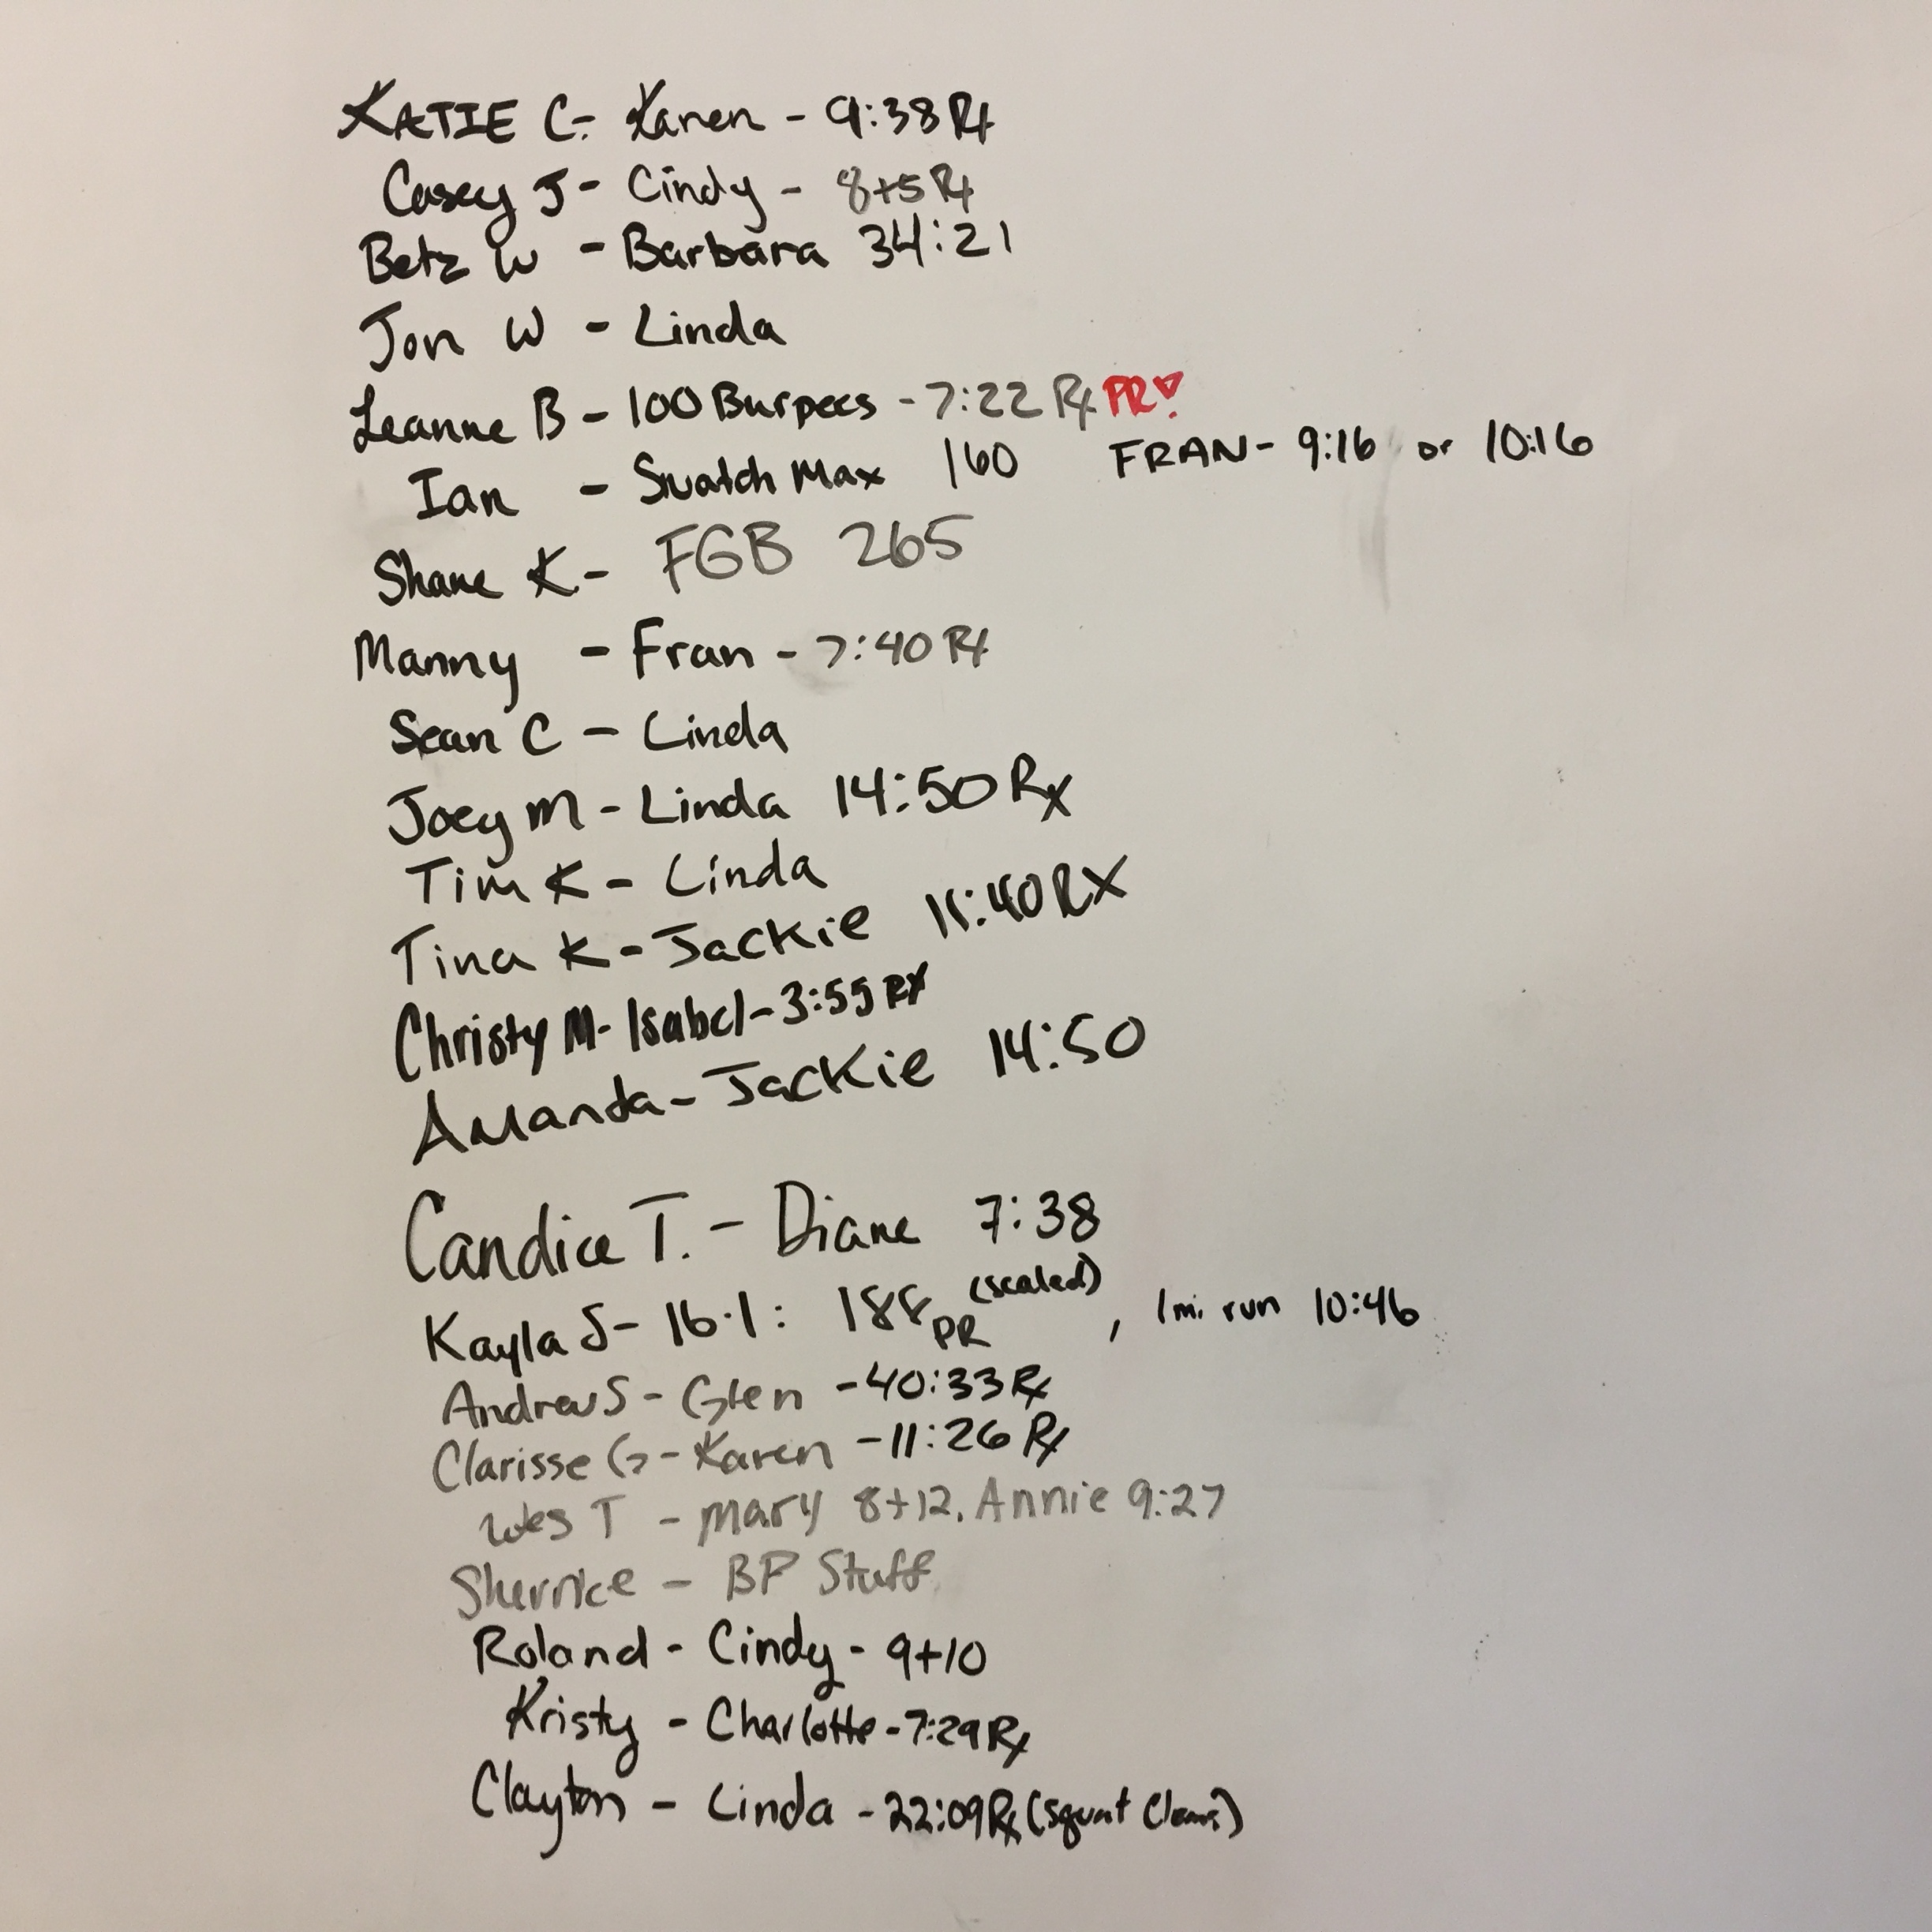 KATIE C - Karen - 9:38 Rx
Casey J - Cindy - 8+5 Rx
Betz W - Barbara 34:21
Jon W - Linda
Leanne B - 100 Burpees - 7:22 Rx PR!
Ian - Snatch Max 160 FRAN - 9:16 or 10:16
Shane K - FGB 265
Manny - Fran - 7:40 Rx
Sean C - Linda
Joey M - Linda 14:50 Rx
Tim K - Linda
Tina K - Jackie 11:40 RX
Christy M - Isabel - 3:55 RX
Amanda - Jackie 14:50
Candice T. - Diane 7:38
Kayla S - 16.1: 188 PR (scaled), 1 mi. run 10:46
Andrew S - Glen - 40:33 Rx
Clarisse G - Karen - 11:26 Rx
Wes T - Mary 8+12, Annie 9:27
Shernice - BP Stuff
Roland - Cindy - 9+10
Kristy - Charlotte - 7:29 Rx
Clayton - Linda - 22:09 Rx (squat Cleans)